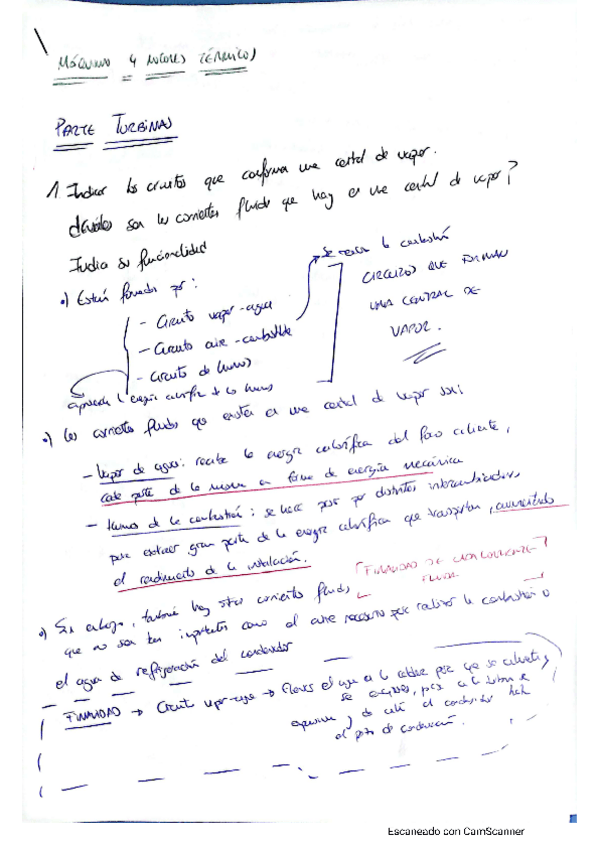 MÁQUINAS Y MOTORES TÉRMICOS
PARTE TURBINAS
1 Indicar los circuitos que conforma una central de vapor.
¿Cuáles son las corrientes fluidas que hay en una central de vapor?
Indica su funcionalidad
•) Están formados por:
se realiza la combustión
- Circuito vapor-agua
- Circuito aire-combustible
- Circuito de humos
CIRCUITOS QUE FORMAN
UNA CENTRAL DE
VAPOR.
energía calorífica de los humos
•) Las corrientes fluidas que existen en una central de vapor son:
- Vapor de agua: recibe la energía calorífica del foco caliente,
cede parte de la misma en forma de energía mecánica
- Humos de la combustión: se hace pasar por distintos intercambiadores
para extraer gran parte de la energía calorífica que transportan, aumentando
el rendimiento de la instalación.
[FINALIDAD DE CADA CORRIENTE
FLUIDA
•) Sin embargo, también hay otras corrientes fluidas
que no son tan importantes como el aire necesario para realizar la combustión o
el agua de refrigeración del condensador
FINALIDAD → Circuito vapor-agua → el agua a la caldera para que se caliente y
se , pasa a la turbina se
expansiona y de ahí al condensador hasta
el punto de condensación.
Escaneado con CamScanner